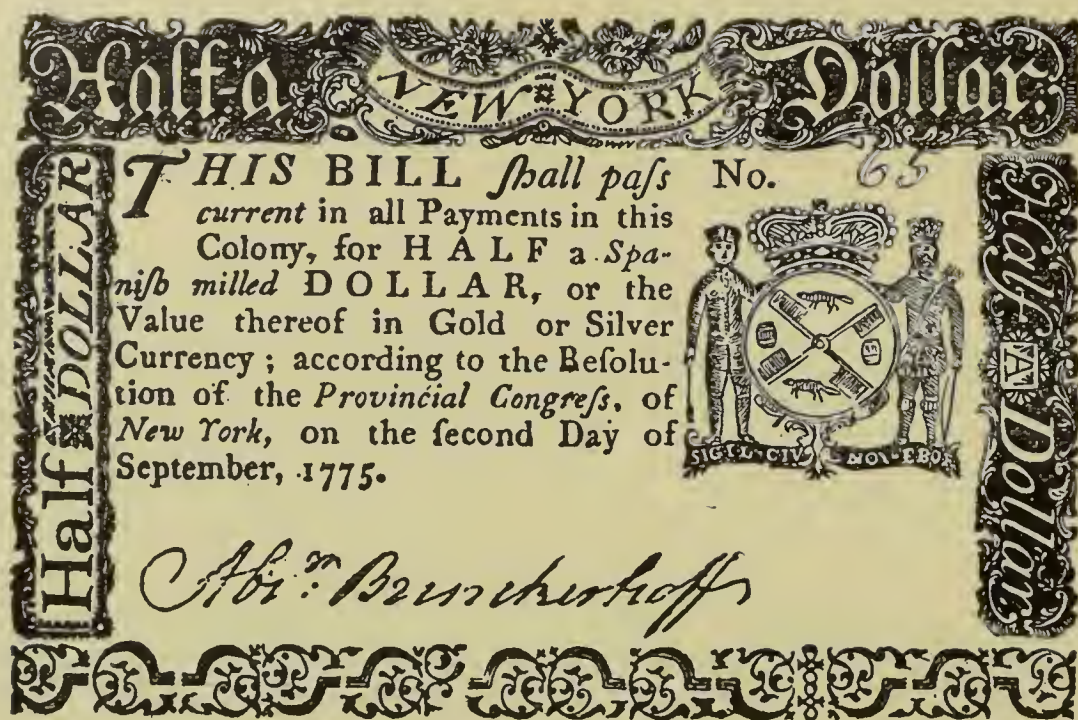 Half-a NEW YORK Dollar.
Half DOLLAR
THIS BILL ſhall paſs
current in all Payments in this
Colony, for HALF a Spa-
niſh milled DOLLAR, or the
Value thereof in Gold or Silver
Currency ; according to the Reſolu-
tion of the Provincial Congreſs, of
New York, on the ſecond Day of
September, 1775.
No. 65
SIGIL·CIV NOV·EBOR
Abrᵐ: Brinckerhoff
Half A Dollar